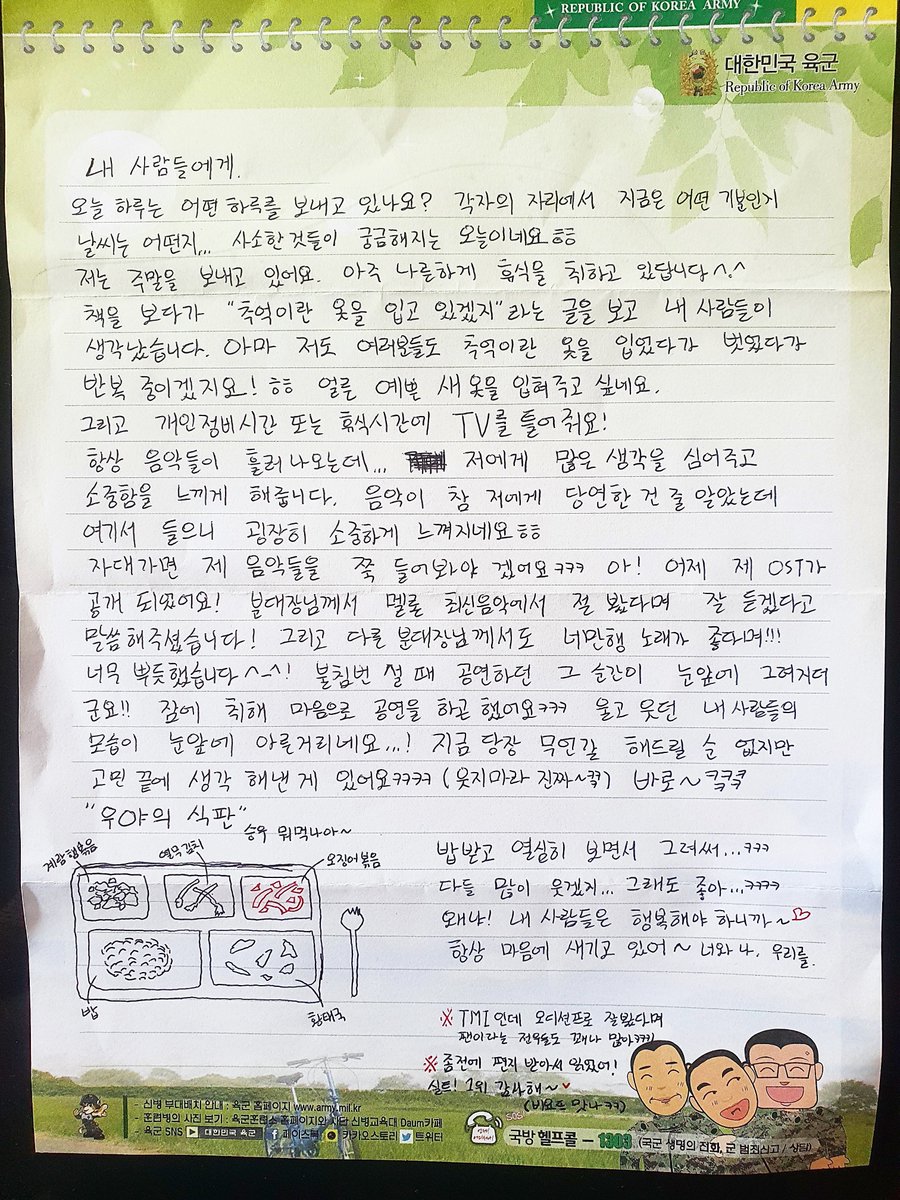 REPUBLIC OF KOREA ARMY
대한민국 육군
Republic of Korea Army
내 사람들에게.
오늘 하루는 어떤 하루를 보내고 있나요? 각자의 자리에서 지금은 어떤 기분인지
날씨는 어떤지,,, 사소한 것들이 궁금해지는 오늘이네요ㅎㅎ
저는 주말을 보내고 있어요. 아주 나른하게 휴식을 취하고 있답니다^.^
책을 보다가 "추억이란 옷을 입고 있겠지"라는 글을 보고 내 사람들이
생각났습니다. 아마 저도 여러분들도 추억이란 옷을 입었다가 벗었다가
반복 중이겠지요! ㅎㅎ 얼른 예쁜 새 옷을 입혀주고 싶네요.
그리고 개인정비시간 또는 휴식시간에 TV를 틀어줘요!
항상 음악들이 흘러나오는데,,, 저에게 많은 생각을 심어주고
소중함을 느끼게 해줍니다. 음악이 참 저에게 당연한 건 줄 알았는데
여기서 들으니 굉장히 소중하게 느껴지네요ㅎㅎ
자대가면 제 음악들을 쭉 들어봐야 겠어요ㅋㅋㅋ 아! 어제 제 OST가
공개 되었어요! 분대장님께서 멜론 최신음악에서 절 봤다며 잘 듣겠다고
말씀해주셨습니다! 그리고 다른 분대장님께서도 너만행 노래가 좋다며!!!
너무 뿌듯했습니다^-^! 불침번 설 때 공연하던 그 순간이 눈앞에 그려지더
군요!! 잠에 취해 마음으로 공연을 하곤 했어요ㅋㅋㅋ 울고 웃던 내 사람들의
모습이 눈앞에 아른거리네요...! 지금 당장 무언갈 해드릴 순 없지만
고민 끝에 생각 해낸 게 있어요ㅋㅋㅋㅋ (웃지마라 진짜~ㅋㅋ) 바로~ 킄킄킄
"우야의 식판"
승우 뭐먹나아~
계란햄볶음
열무김치
오징어볶음
밥
황태국
밥받고 열실히 보면서 그려써...ㅋㅋㅋ
다들 많이 웃겠지... 그래도 좋아...ㅋㅋㅋㅋ
왜냐! 내 사람들은 행복해야 하니까~♡
항상 마음에 새기고 있어~ 너와 나, 우리를.
※ TMI인데 오디션프로 잘봤다며
팬이라는 전우들도 꽤나 많아ㅋㅋㅋ
※ 좀전에 편지 받아서 읽었어!
실트! 1위 감사해~♥
(비욘드 맞나ㅋㅋ)
- 신병 부대배치 안내 : 육군 홈페이지 www.army.mil.kr
- 훈련병의 사진 보기 : 육군훈련소 홈페이지와 사단 신병교육대 Daum카페
- 육군 SNS 대한민국 육군 페이스북 카카오스토리 트위터
국방 헬프콜 - 1303 (국군 생명의 전화, 군 범죄신고 / 상담)